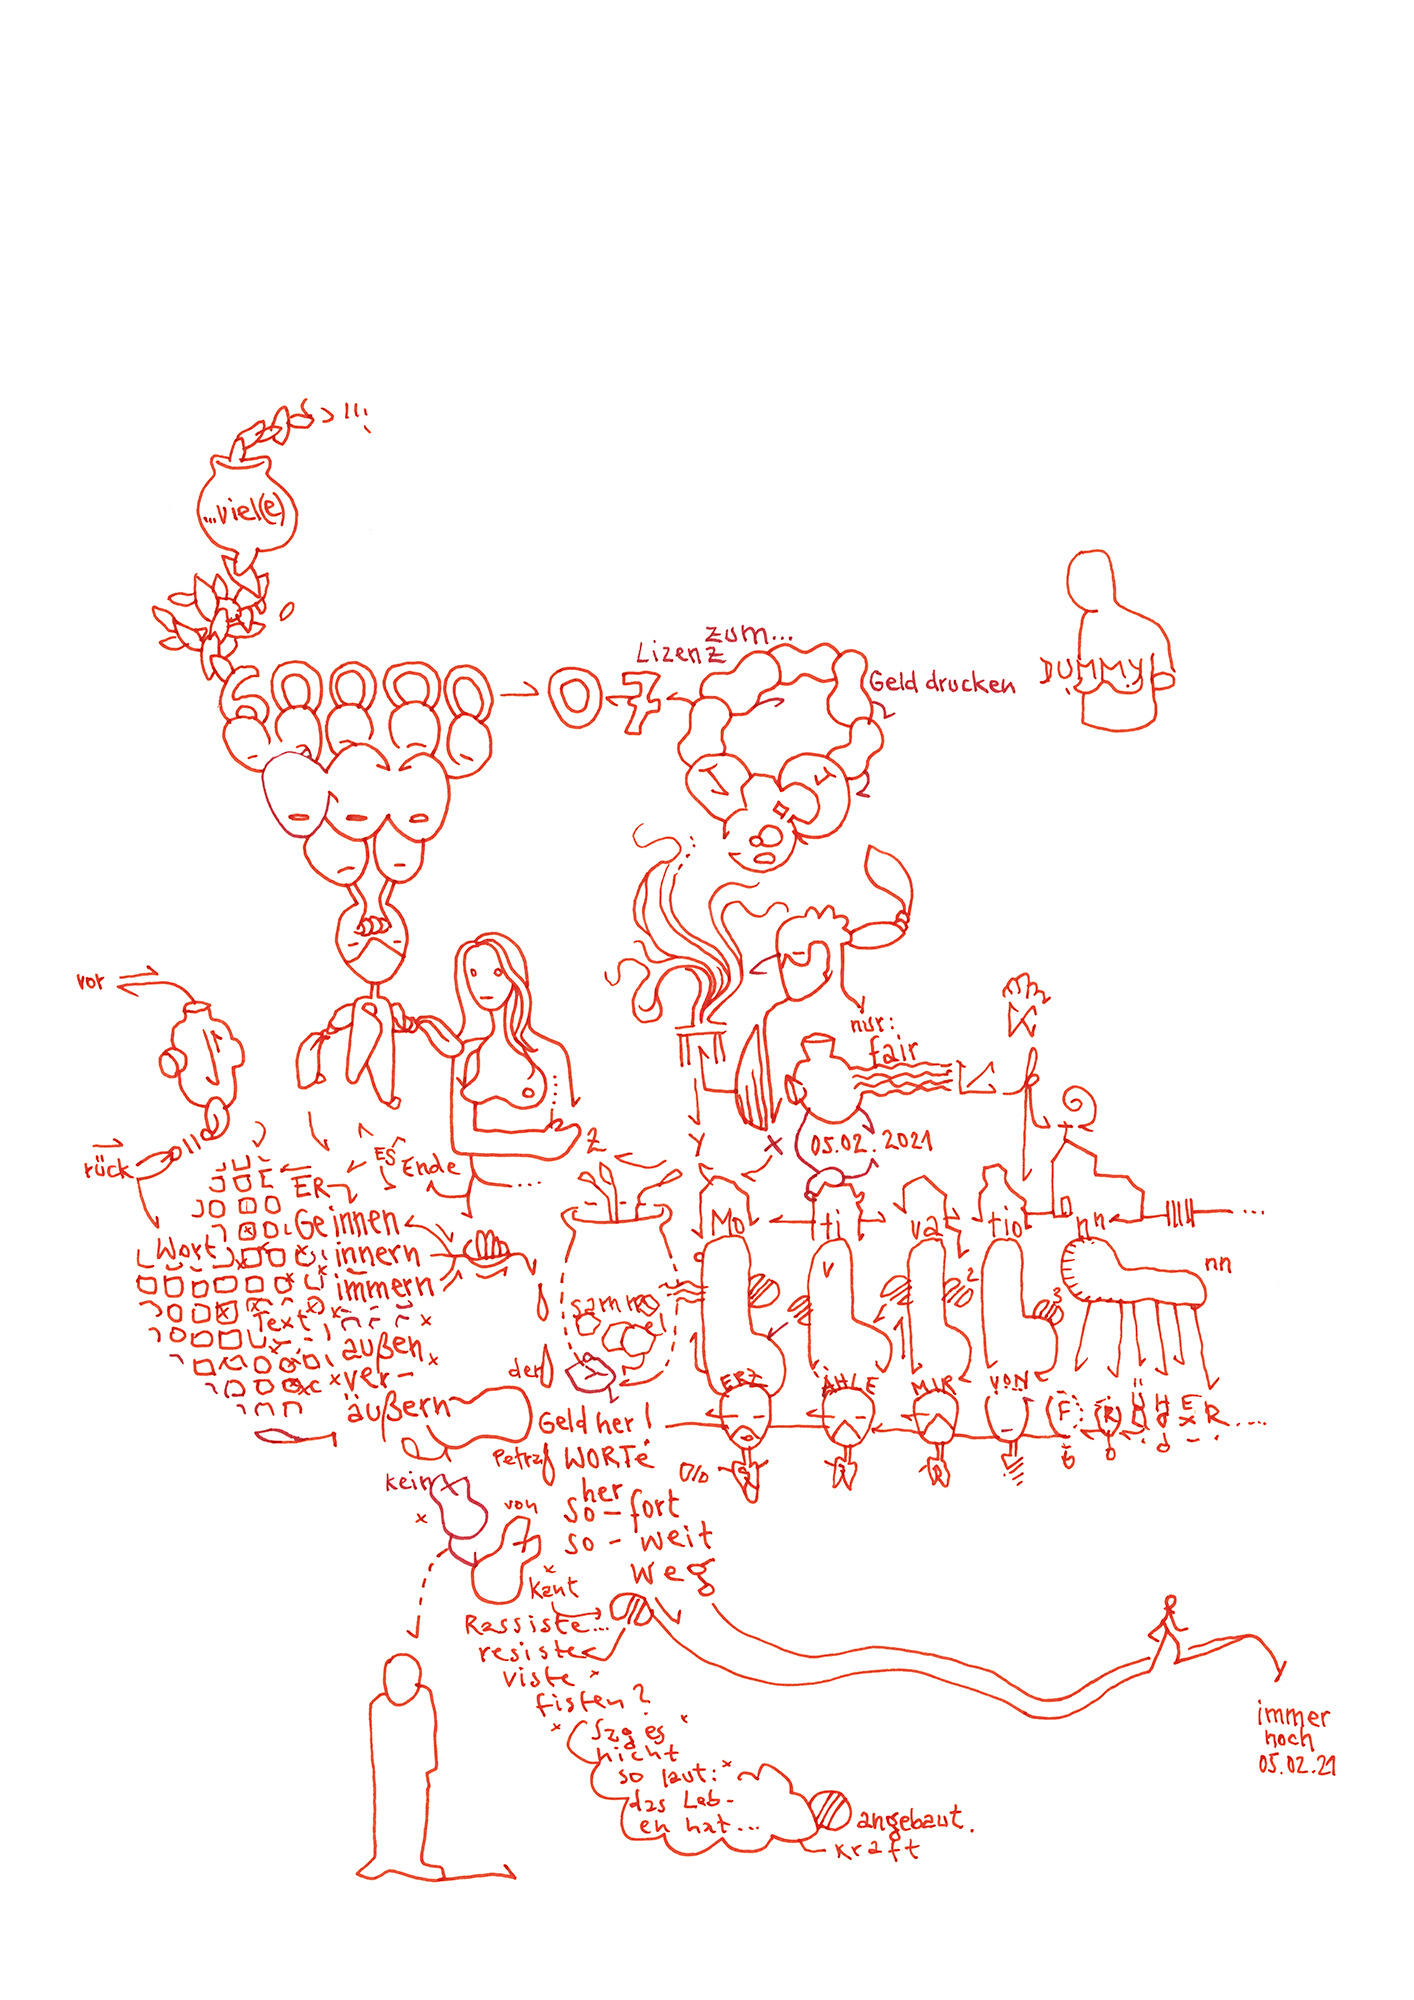 ...viel(e)
60000 → 07
Lizenz
zum...
Geld drucken
DUMMY
vor
rück
nur:
fair
05.02.2021
ES
Ende
Z
Y
X
E
ER
Ge innen
innern
immern
Wort
Text
außen
ver-
äußern
Mo
ti
va
tio
nn
nn
V
2
3
samm
el
der
ERZ
ÄHLE
MIR
VON
F
R
Ü
H
E
R....
Geld her!
Petra
WORTE
kein
von
her
so-fort
so-weit
weg
Kant
Rassiste...
resiste
viste
fisten?
Sag es
nicht
so laut:
das Leb-
en hat...
angebaut.
Kraft
immer
noch
05.02.21